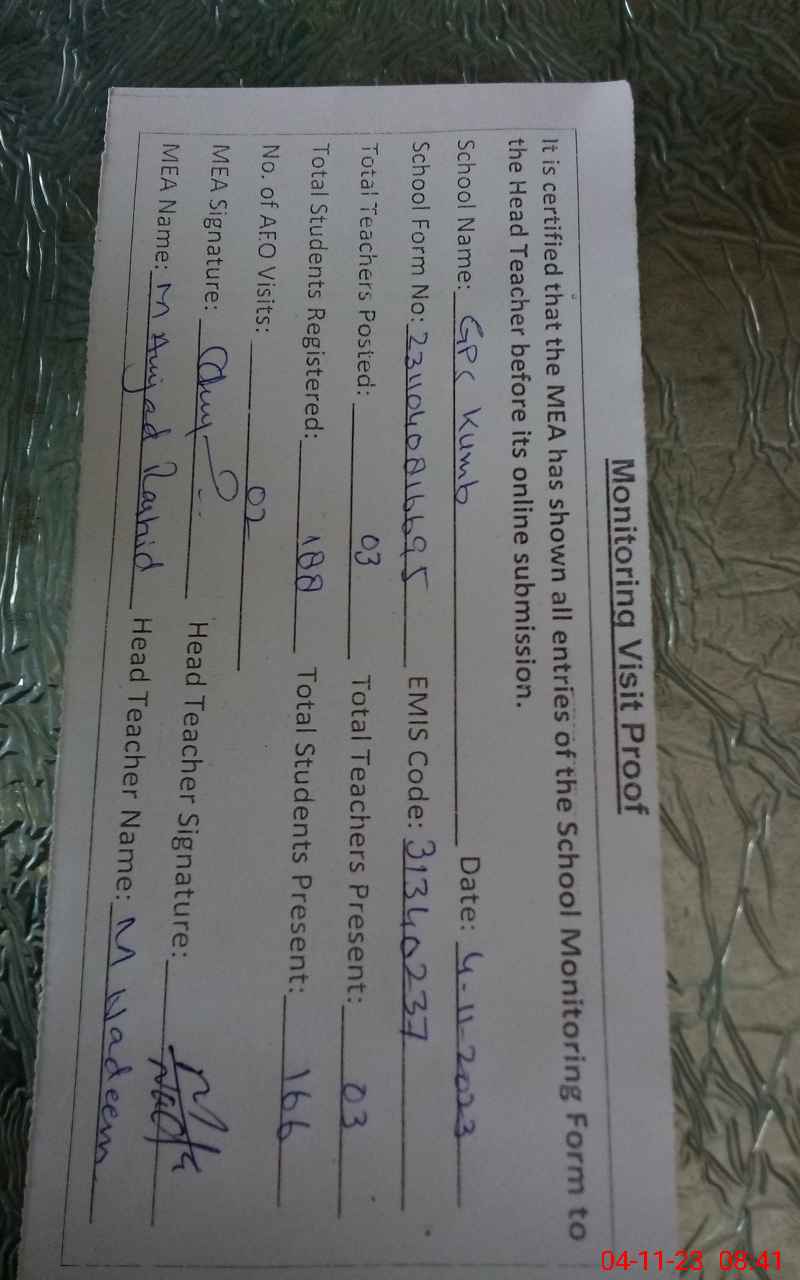 Monitoring Visit Proof
It is certified that the MEA has shown all entries of the School Monitoring Form to
the Head Teacher before its online submission.
School Name: GPS Kumb Date: 4-11-2023
School Form No: EMIS Code: 31340237
Total Teachers Posted: 03 Total Teachers Present: 03
Total Students Registered: 188 Total Students Present: 166
No. of AEO Visits: 02
MEA Signature: Head Teacher Signature:
MEA Name: M Amjad Rashid Head Teacher Name: M Nadeem
04-11-23 08:41